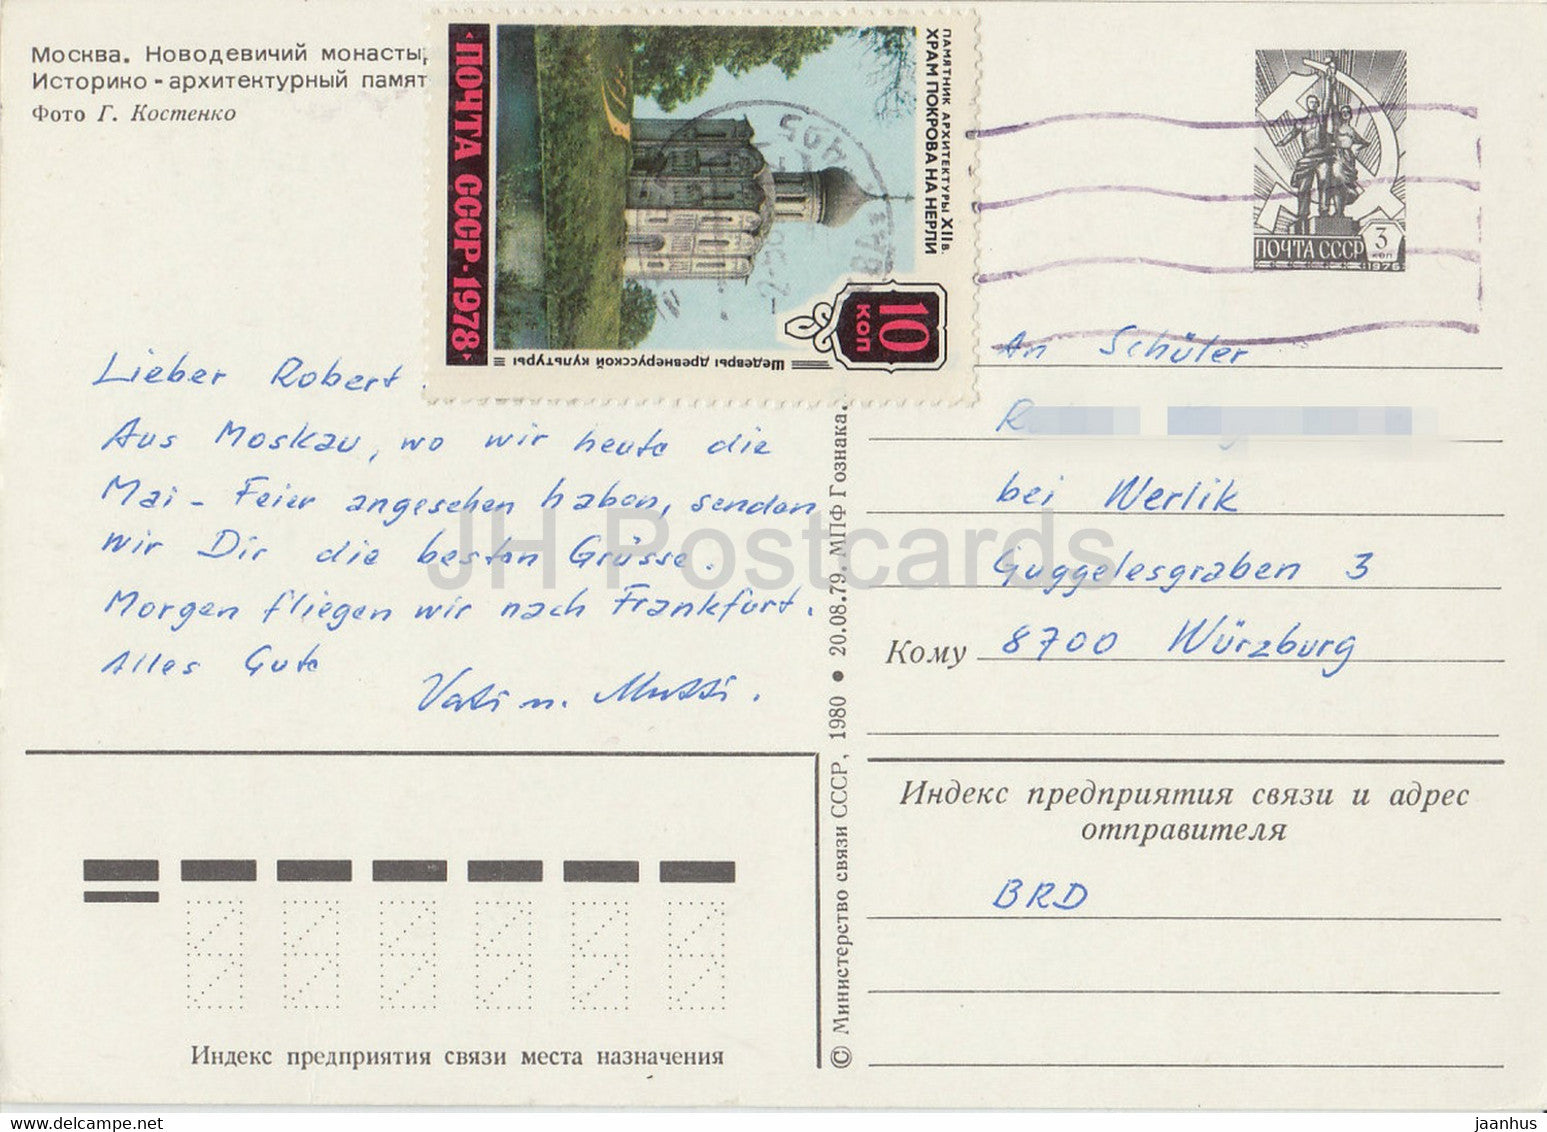 Москва. Новодевичий
Историко-архитектурный
Фото Г. Костенко
ПОЧТА СССР·1978
ПАМЯТНИК АРХИТЕКТУРЫ XII в.
ХРАМ ПОКРОВА НА НЕРЛИ
10
КОП
Шедевры древнерусской культуры
ПОЧТА СССР
3
коп
1976
Lieber Robert.
Aus Moskau, wo wir heute die
Mai-Feier angesehen haben, senden
wir Dir die besten Grüsse.
Morgen fliegen wir nach Frankfurt.
Alles Gute
Vati u. Mutti.
An Schüler
bei Werlik
Guggelesgraben 3
Кому 8700 Würzburg
Индекс предприятия связи и адрес
отправителя
BRD
© Министерство связи СССР, 1980 • 20.08.79. МПФ Гознака.
Индекс предприятия связи места назначения
JH Postcards
jaanhus